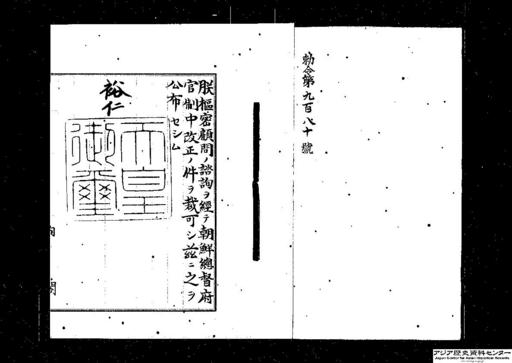 勅令第九百八十號
朕樞密顧問ノ諮詢ヲ經テ朝鮮總督府
官制中改正ノ件ヲ裁可シ茲ニ之ヲ
公布セシム
裕仁
天皇御璽
アジア歴史資料センター
Japan Center for Asian Historical Records